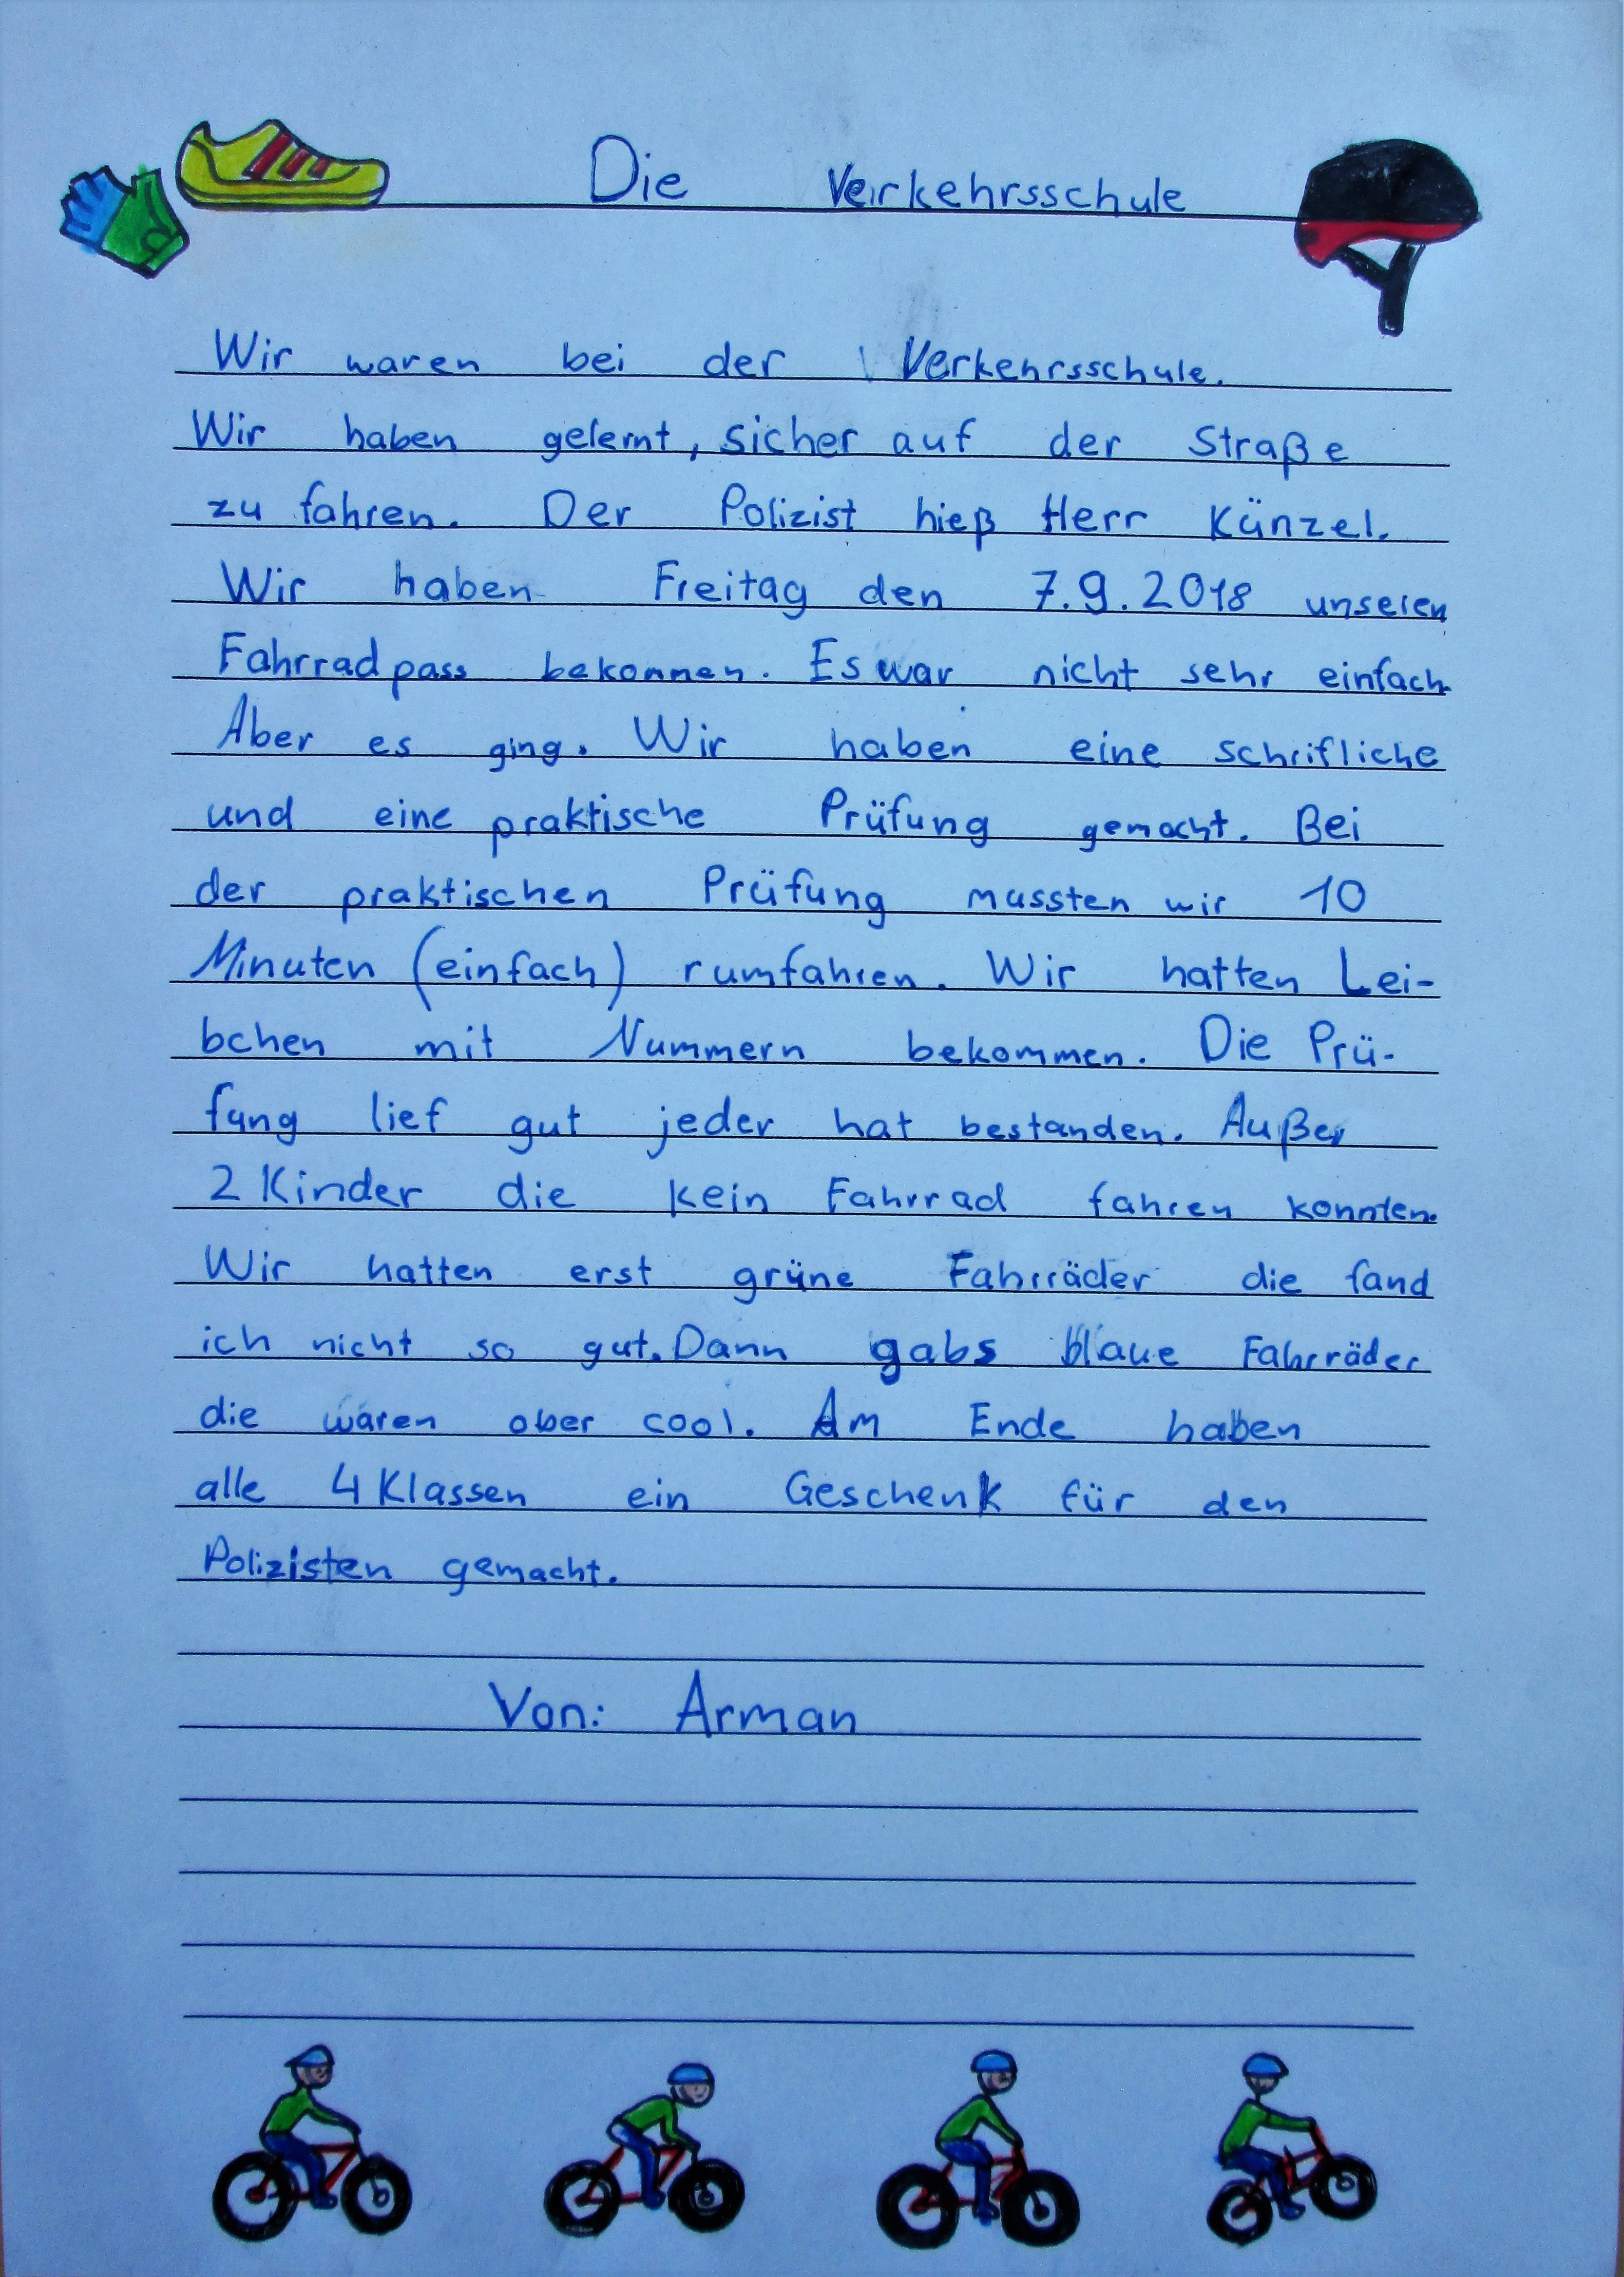 Die Verkehrsschule
Wir waren bei der Verkehrsschule.
Wir haben gelernt, sicher auf der Straße
zu fahren. Der Polizist hieß Herr Künzel.
Wir haben Freitag den 7.9.2018 unseren
Fahrradpass bekommen. Es war nicht sehr einfach.
Aber es ging. Wir haben eine schrifliche
und eine praktische Prüfung gemacht. Bei
der praktischen Prüfung mussten wir 10
Minuten (einfach) rumfahren. Wir hatten Lei-
bchen mit Nummern bekommen. Die Prü-
fung lief gut jeder hat bestanden. Außer
2 Kinder die kein Fahrrad fahren konnten.
Wir hatten erst grüne Fahrräder die fand
ich nicht so gut. Dann gabs blaue Fahrräder
die waren ober cool. Am Ende haben
alle 4 Klassen ein Geschenk für den
Polizisten gemacht.
Von: Arman